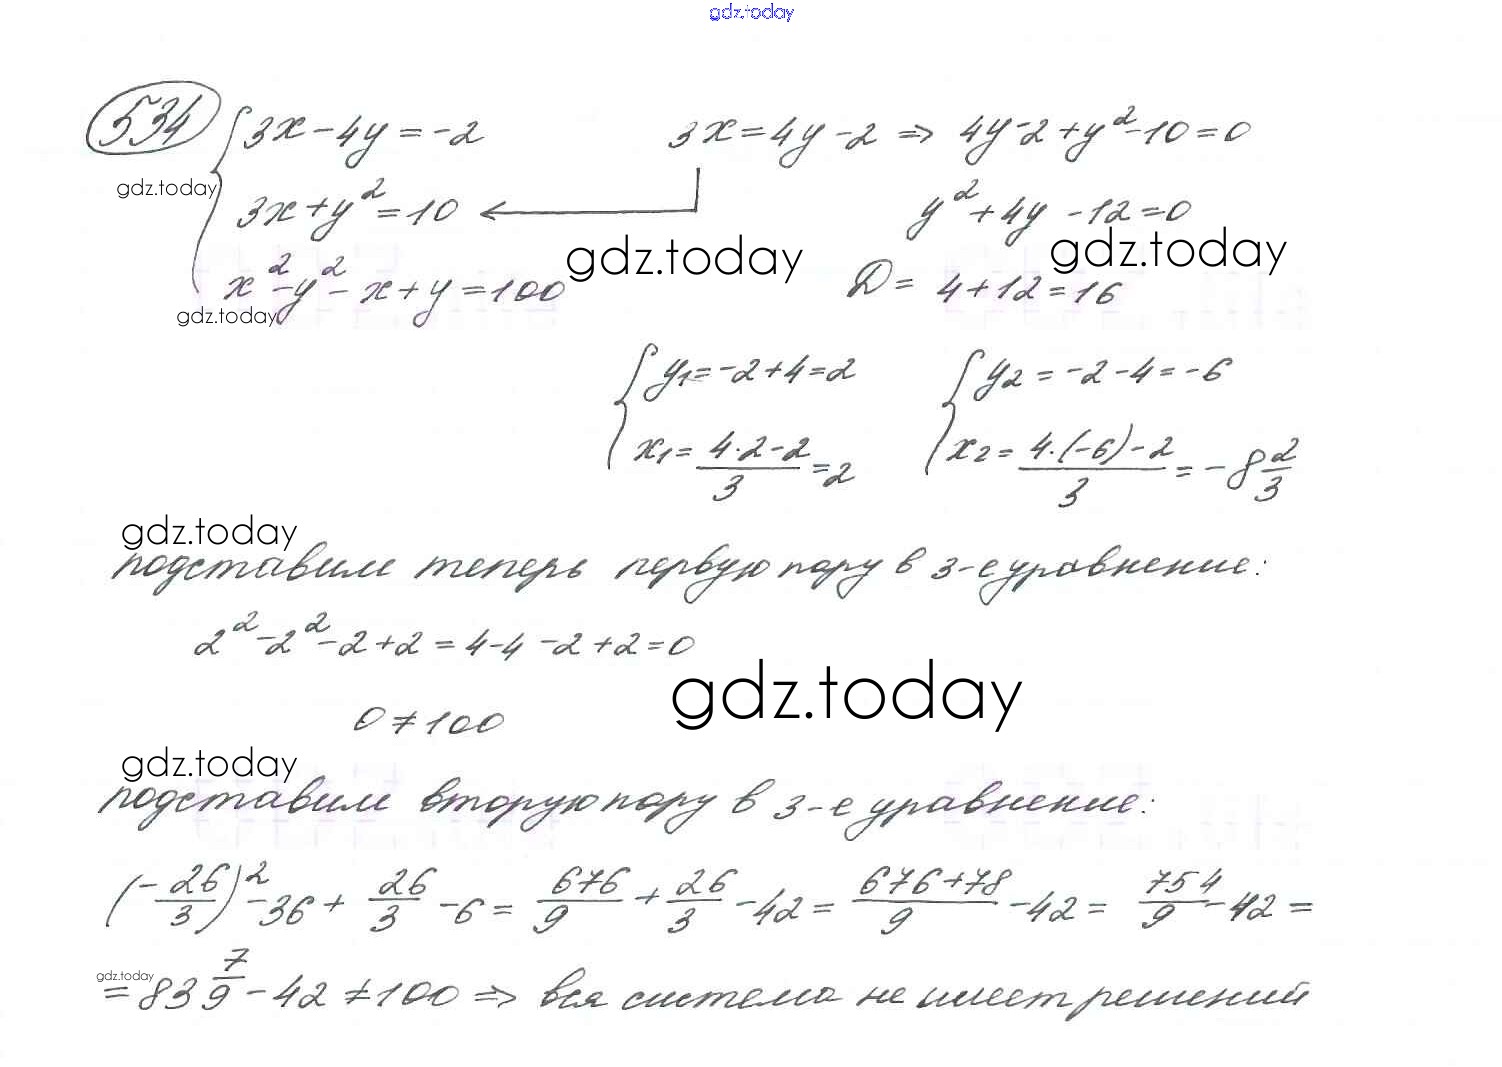 gdz.today
534 { 3x-4y=-2   3x=4y-2 ⇒ 4y-2+y²-10=0
gdz.today
3x+y²=10 ←   y²+4y-12=0
gdz.today gdz.today
x²-y²-x+y=100   D= 4+12=16
gdz.today
{ y₁=-2+4=2   { y₂=-2-4=-6
x₁= (4·2-2)/3 =2   x₂= (4·(-6)-2)/3 = -8 2/3
gdz.today
подставим теперь первую пару в 3-е уравнение:
2²-2²-2+2=4-4-2+2=0
gdz.today
0≠100
gdz.today
подставим вторую пару в 3-е уравнение:
(-26/3)²-36+ 26/3 -6= 676/9 + 26/3 -42= (676+78)/9 -42= 754/9 -42=
gdz.today
=83 7/9 -42≠100 ⇒ вся система не имеет решений